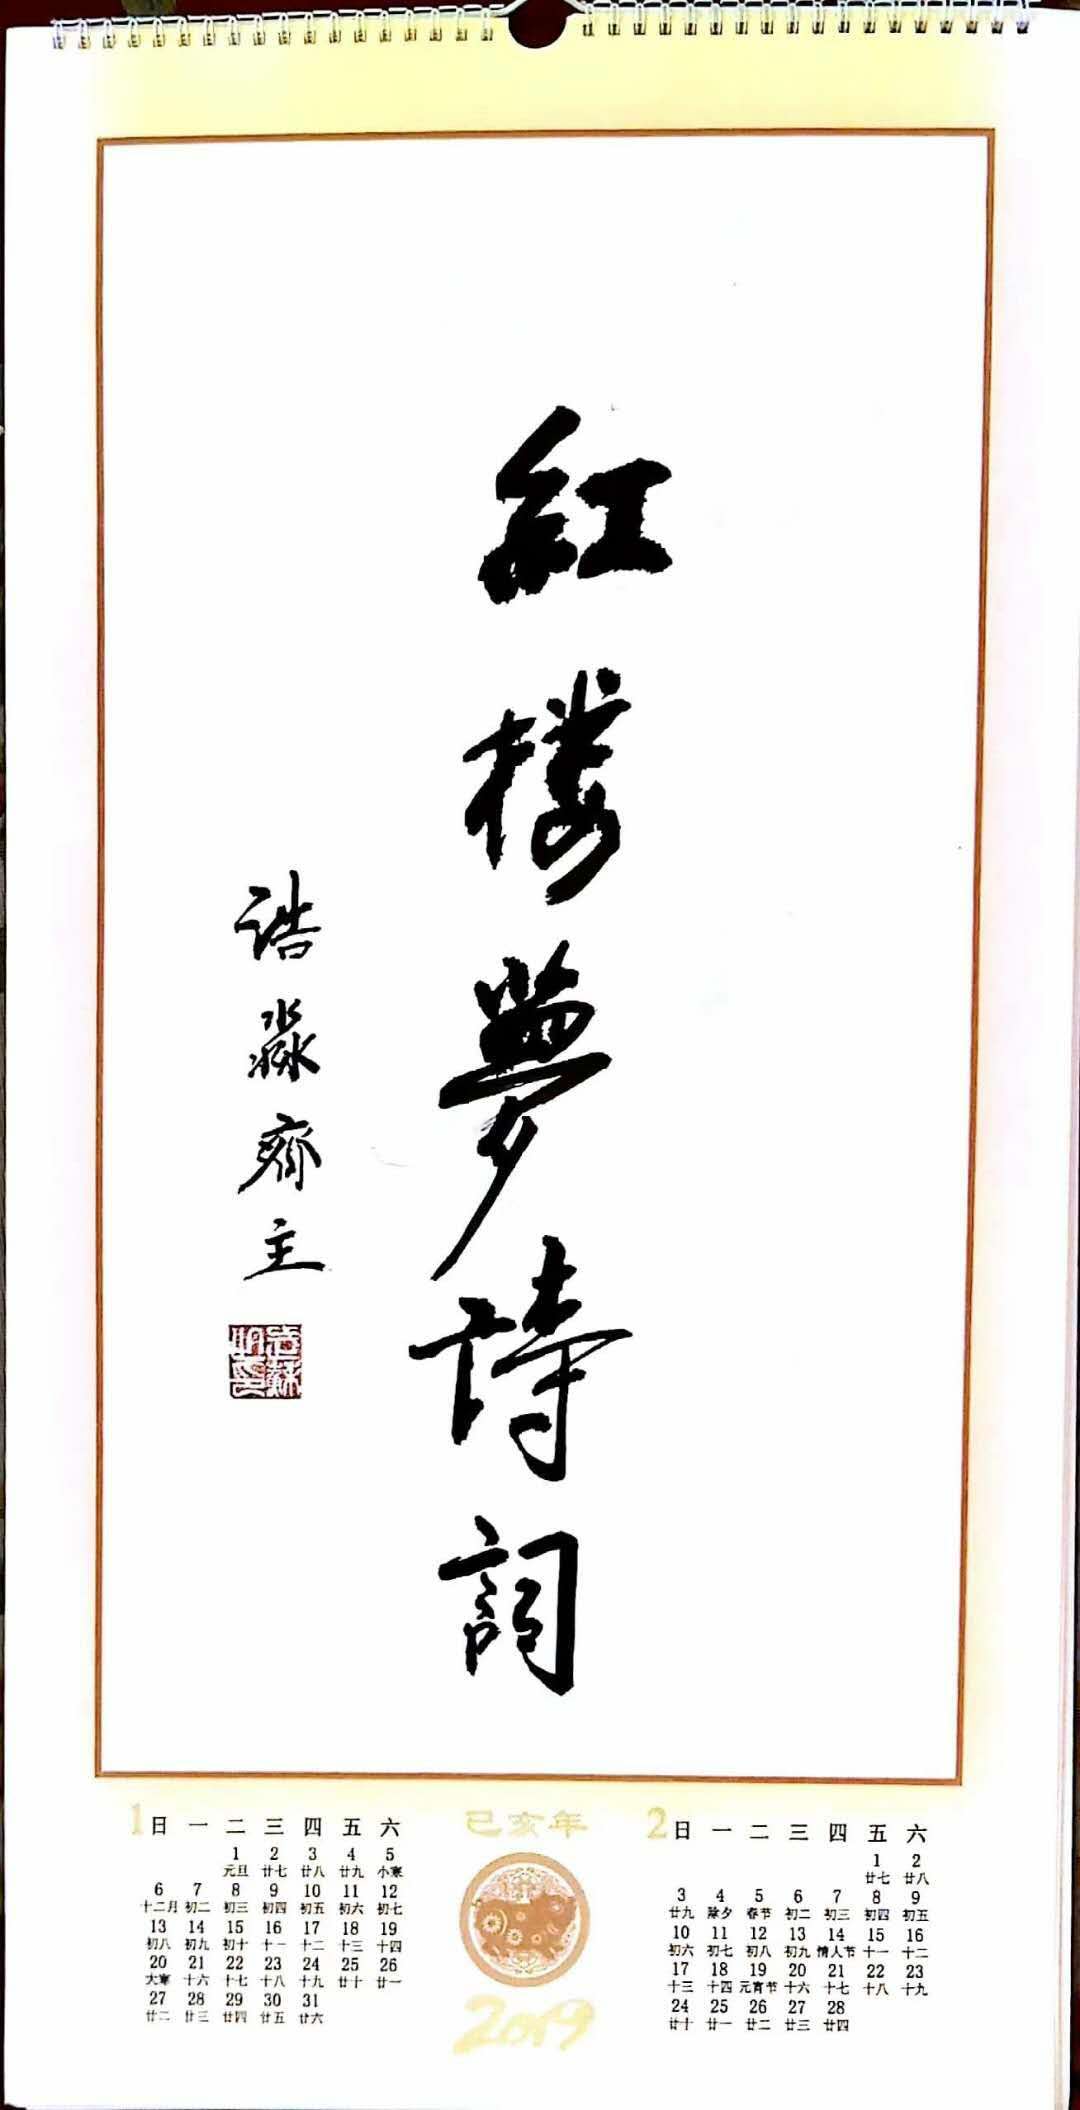 紅楼夢詩詞
誥淼齋主
1 日 一 二 三 四 五 六
1 2 3 4 5
元旦 廿七 廿八 廿九 小寒
6 7 8 9 10 11 12
十二月 初二 初三 初四 初五 初六 初七
13 14 15 16 17 18 19
初八 初九 初十 十一 十二 十三 十四
20 21 22 23 24 25 26
大寒 十六 十七 十八 十九 廿十 廿一
27 28 29 30 31
廿二 廿三 廿四 廿五 廿六
己亥年
2019
2 日 一 二 三 四 五 六
1 2
廿七 廿八
3 4 5 6 7 8 9
廿九 除夕 春节 初二 初三 初四 初五
10 11 12 13 14 15 16
初六 初七 初八 初九 情人节 十一 十二
17 18 19 20 21 22 23
十三 十四 元宵节 十六 十七 十八 十九
24 25 26 27 28
廿十 廿一 廿二 廿三 廿四